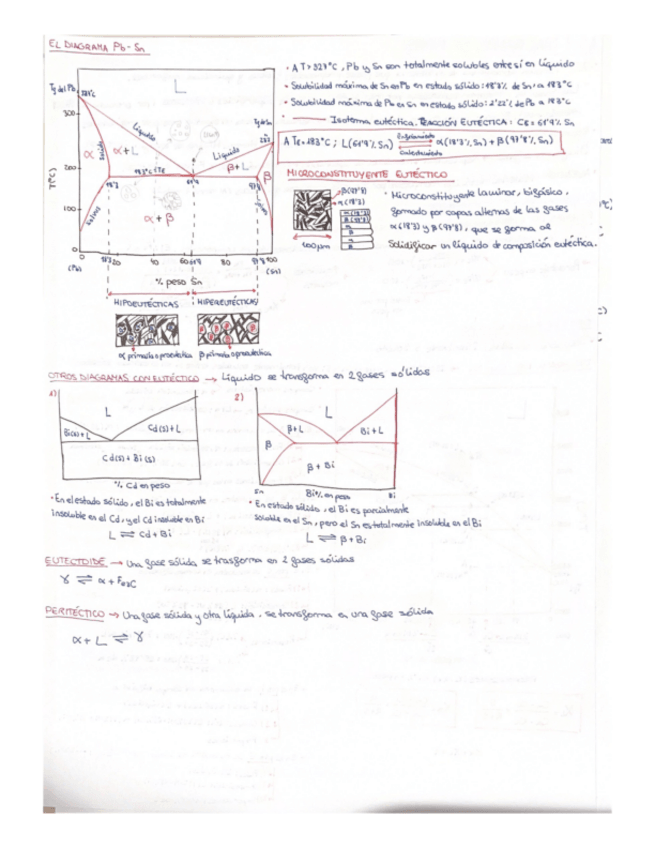 EL DIAGRAMA Pb-Sn
· A T>327°C, Pb y Sn son totalmente solubles entre sí en líquido
· Solubilidad máxima de Sn en Pb en estado sólido: 18'3% de Sn a 183°C
· Solubilidad máxima de Pb en Sn en estado sólido: 2'22% de Pb a 183°C
Isoterma eutéctica. REACCIÓN EUTÉCTICA: CE = 61'9% Sn
A TE = 183°C; L(61'9% Sn) Enfriamiento Calentamiento α(18'3% Sn) + β(97'8% Sn)
Tf del Pb
327°C
Tf de Sn
L
Líquidus
Líquidus
α
α+L
β+L
β
183°C (TE)
18'3
61'9
97'8
α+β
T(°C)
300
200
100
0
0 18'3 20 40 60 61'9 80 97'8 100
(Pb)
(Sn)
% peso Sn
HIPOEUTÉCTICAS
HIPEREUTÉCTICAS
α primaria o proeutéctica
β primaria o proeutéctica
MICROCONSTITUYENTE EUTÉCTICO
β(97'8)
α(18'3)
α(18'3)
β(97'8)
α
β
· Microconstituyente laminar, bifásico,
formado por capas alternas de las fases
α(18'3) y β(97'8), que se forma al
solidificar un líquido de composición eutéctica.
OTROS DIAGRAMAS CON EUTÉCTICO → Líquido se transforma en 2 fases sólidas
1)
L
Bi(s)+L
Cd(s)+L
Cd(s)+Bi(s)
% Cd en peso
· En el estado sólido, el Bi es totalmente
insoluble en el Cd, y el Cd insoluble en Bi
L ⇌ Cd+Bi
2)
L
β+L
Bi+L
β
β+Bi
Sn
Bi% en peso
Bi
· En estado sólido, el Bi es parcialmente
soluble en el Sn, pero el Sn es totalmente insoluble en el Bi
L ⇌ β+Bi
EUTECTOIDE → Una fase sólida se trasforma en 2 fases sólidas
γ ⇌ α + Fe3C
PERITÉCTICO → Una fase sólida y otra líquida, se transforma en una fase sólida
α+L ⇌ γ